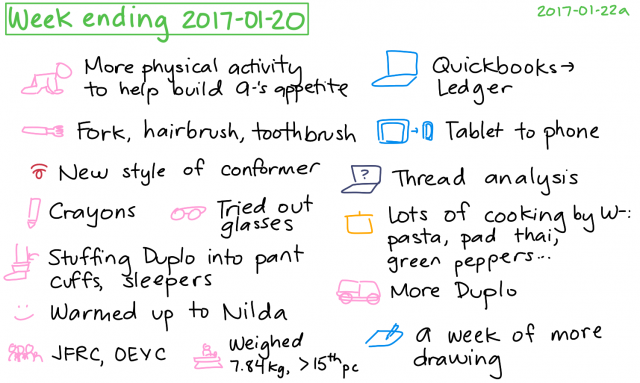 Week ending 2017-01-20
2017-01-22a
More physical activity
to help build A-'s appetite
Fork, hairbrush, toothbrush
New style of conformer
Crayons
Tried out
glasses
Stuffing Duplo into pant
cuffs, sleepers
Warmed up to Nilda
JFRC, OEYC
Weighed
7.84kg, >15th pc
Quickbooks→
Ledger
Tablet to phone
?
Thread analysis
Lots of cooking by W-:
pasta, pad thai,
green peppers...
More Duplo
A week of more
drawing